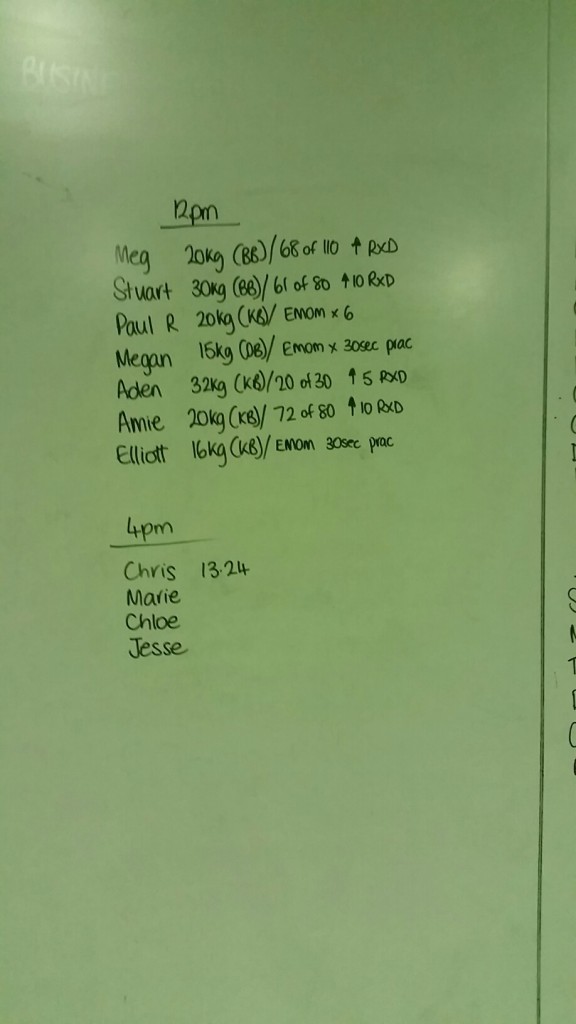 BUSINE
12pm
Meg 20kg (BB)/68 of 110 ↑ RXD
Stuart 30kg (BB)/61 of 80 ↑10 RXD
Paul R 20kg (KB)/ EMOM x 6
Megan 15kg (DB)/ EMOM x 30sec prac
Aden 32kg (KB)/20 of 30 ↑ 5 RXD
Amie 20kg (KB)/ 72 of 80 ↑10 RXD
Elliott 16kg (KB)/ EMOM 30sec prac
4pm
Chris 13.24
Marie
Chloe
Jesse